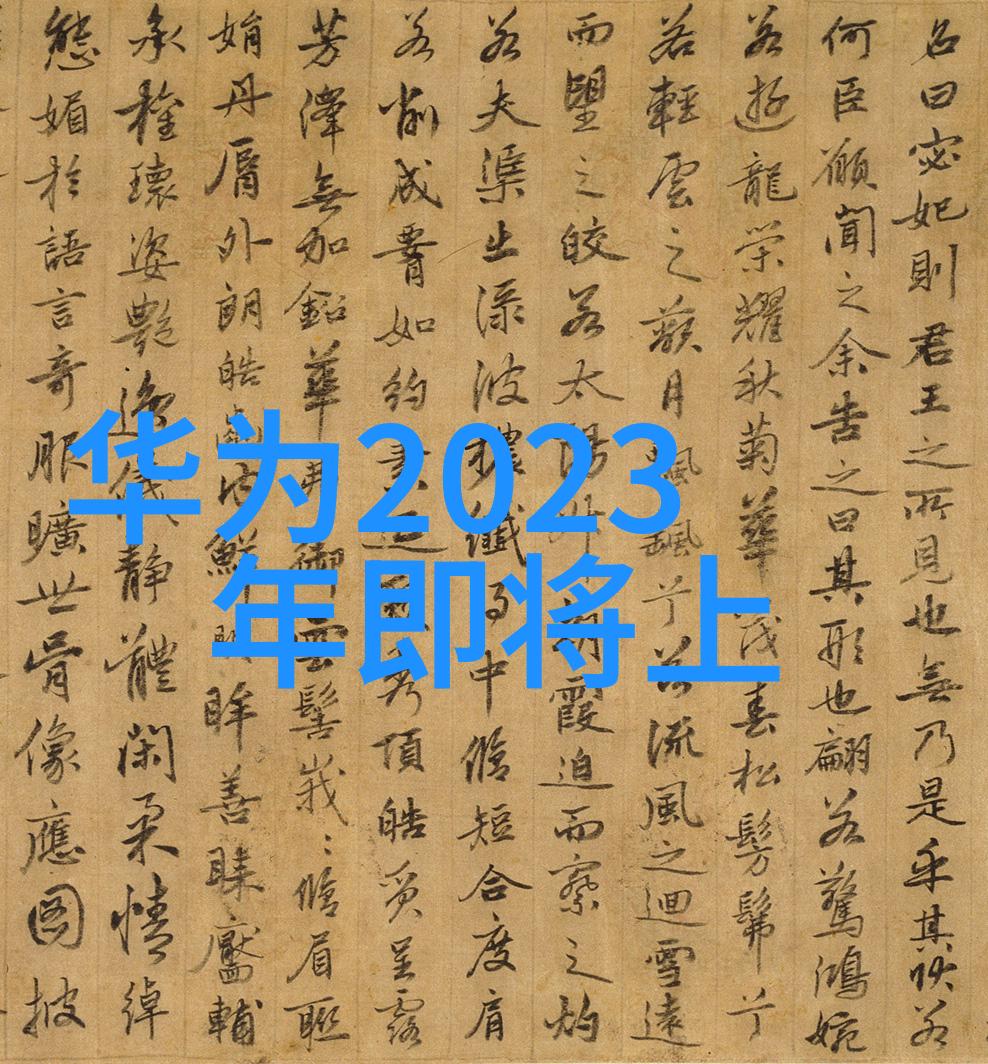 华为2023
年即将上
名曰宓妃則君王之所見也無乃是乎其狀若
何臣願聞之余告之曰其形也翩若驚鴻婉
若遊龍榮耀秋菊華茂春松髣髴兮
若輕雲之蔽月飄颻兮若流風之迴雪遠
而望之皎若太陽升朝霞迫而察之灼
若夫渠出淥波穠纖得中脩短合度肩
若削成腰如約素延頸秀項皓質呈露
芳澤無加鉛華弗御雲髻峩〻脩眉聯
娟丹脣外朗皓齒内鮮明眸善睞靨輔
承權瓌姿艷逸儀靜體閑柔情綽
態媚於語言奇服曠世骨像應圖披